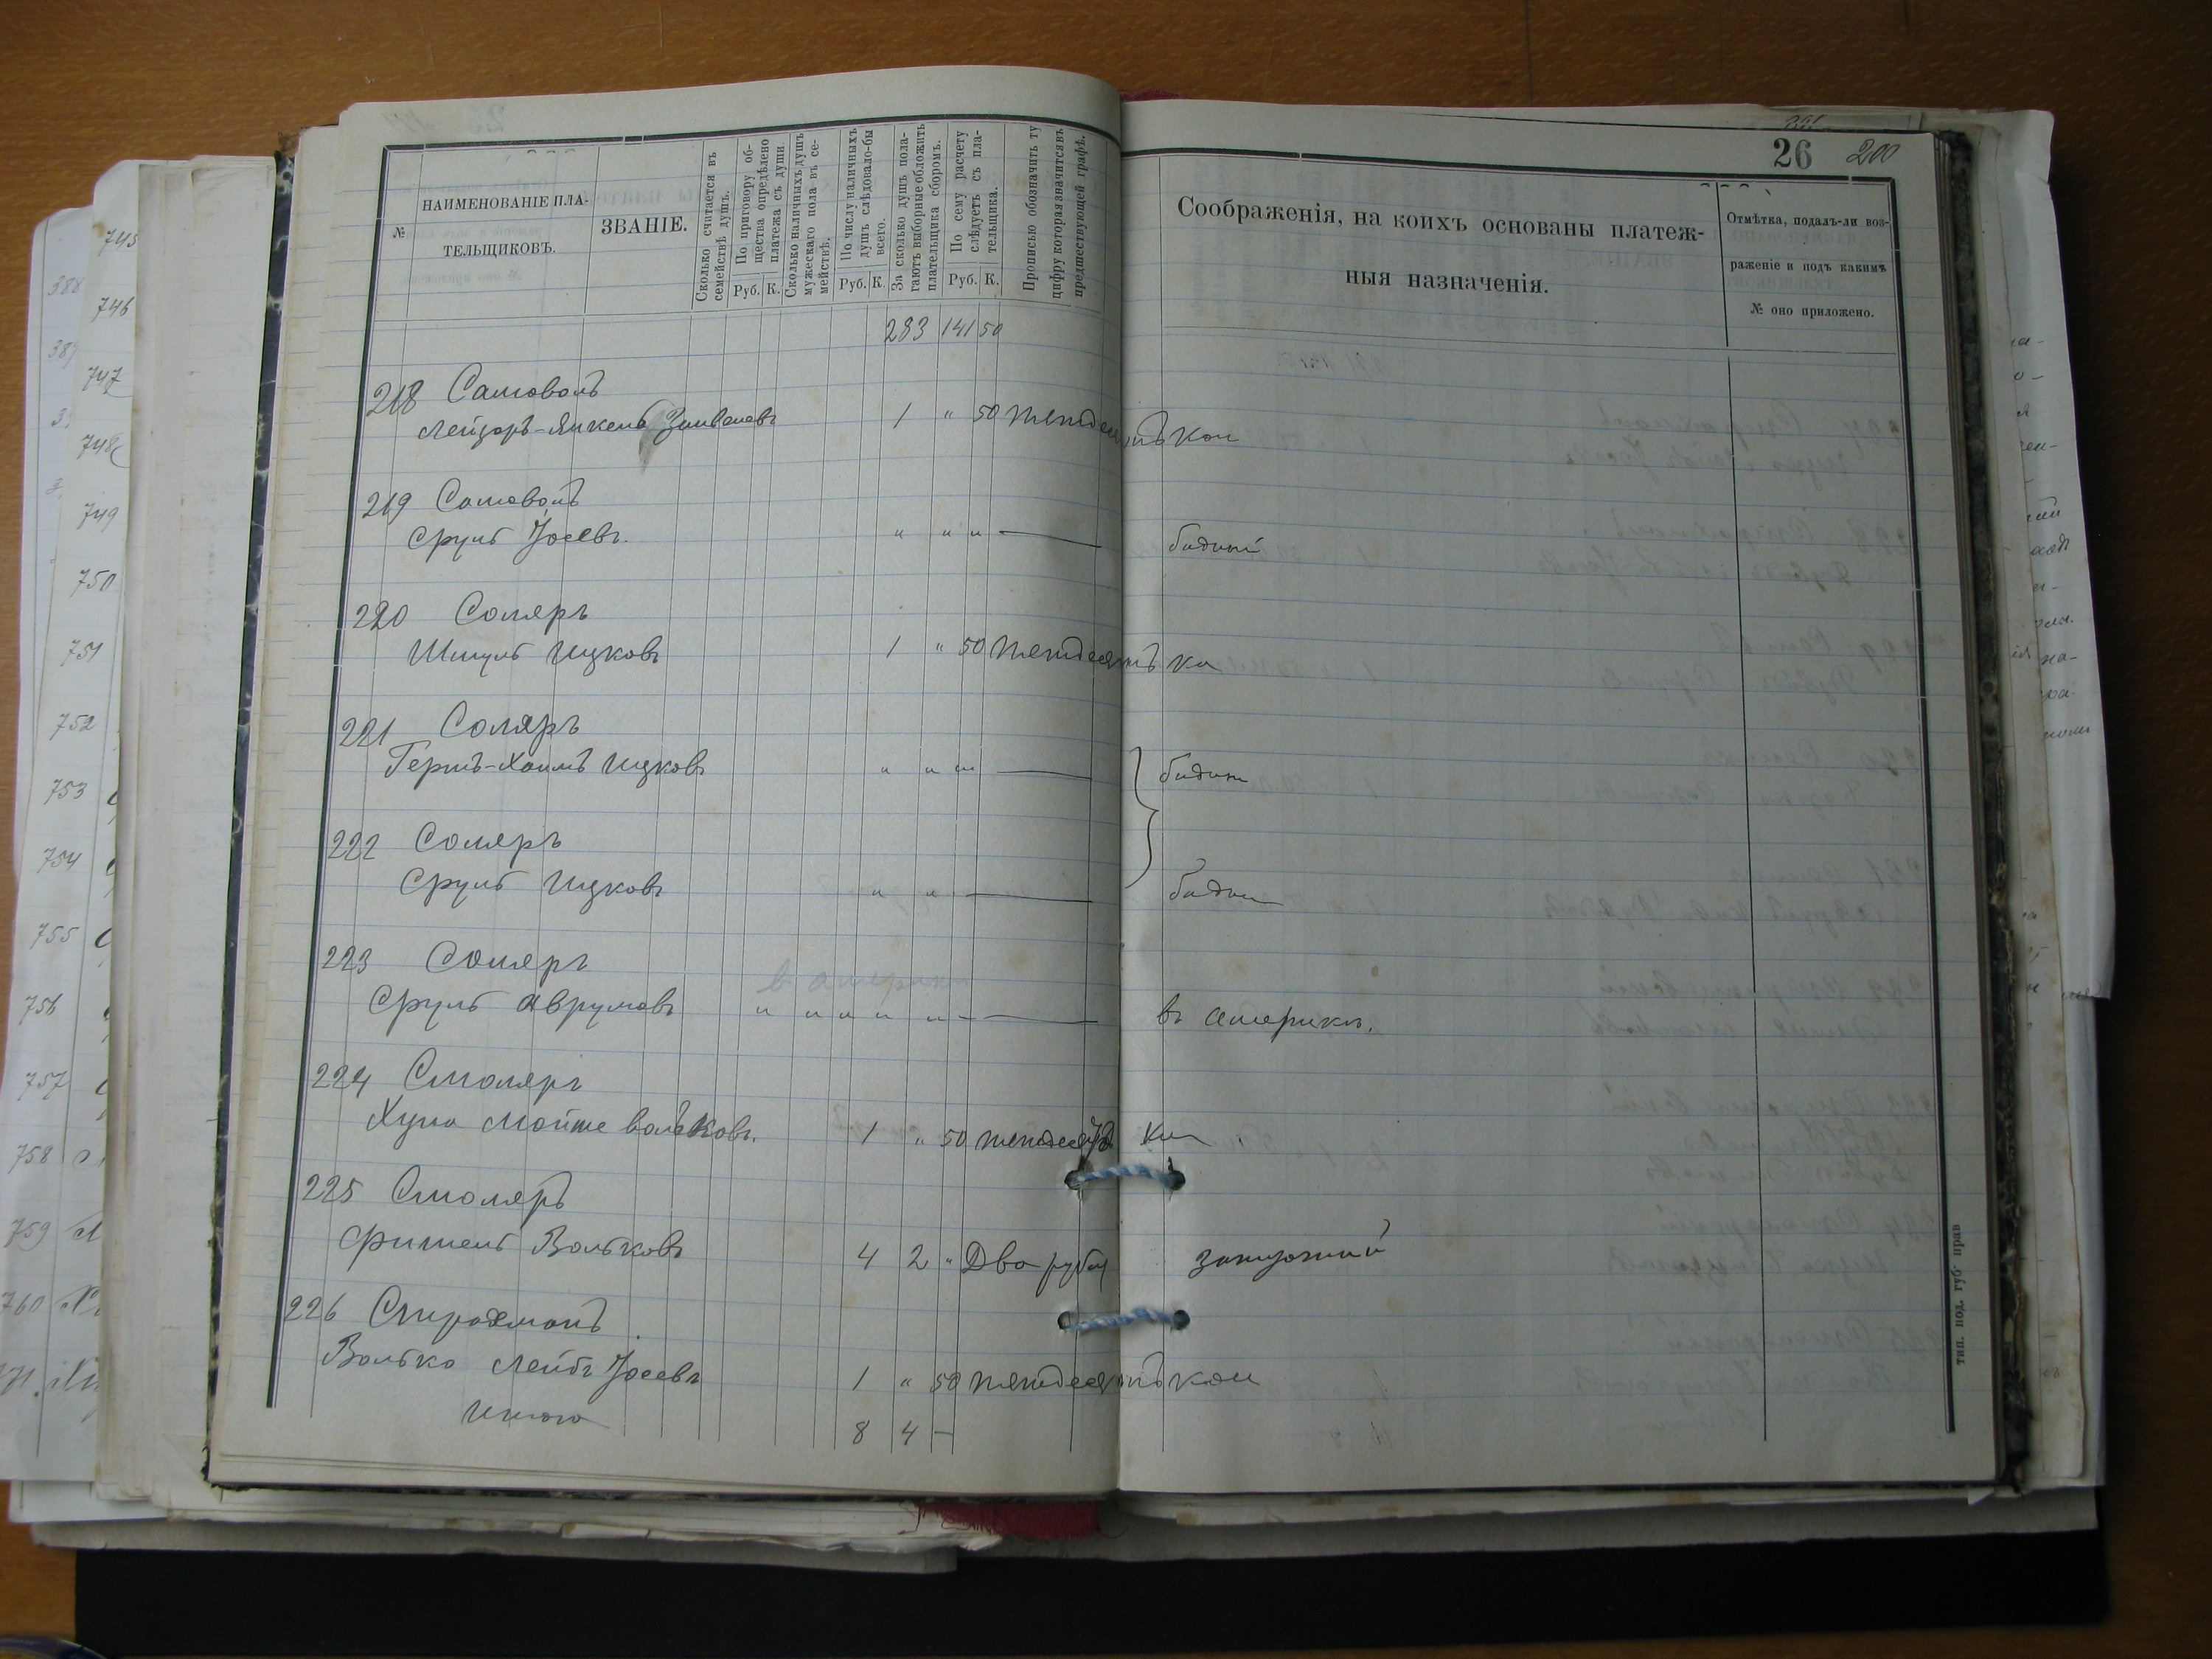 26 200
№
НАИМЕНОВАНІЕ ПЛА-
ТЕЛЬЩИКОВЪ.
ЗВАНІЕ.
Сколько считается въ
семействѣ душъ.
По приговору об-
щества опредѣлено
платежа съ души
Руб. К.
Сколько наличныхъ душъ
мужескаго пола въ се-
мействѣ.
По числу наличныхъ
душъ слѣдовало-бы
всего.
Руб. К.
За сколько душъ пола-
гаютъ выборные обложить
плательщика сборомъ.
По сему расчету
слѣдуетъ съ пла-
тельщика.
Руб. К.
Прописью обозначить ту
цифру которая значится въ
предшествующей графѣ.
Соображенія, на коихъ основаны платеж-
ныя назначенія.
Отмѣтка, подалъ-ли воз-
раженіе и подъ какимъ
№ оно приложено.
283 141 50
218 Самоволъ
Лейзоръ-Янкель 1 " 50 пятдесятъ коп
219 Самоволъ
Сруль Іосевъ " " " — бѣдный
220 Соляръ
Шмуль Ицковъ 1 " 50 пятдесятъ ко
221 Соляръ
Гершъ-Хаимъ Ицковъ " " " — бѣдны
222 Соляръ
Сруль Ицковъ " " — бѣдн
223 Соляръ
в америки
Сруль Аврумовъ " " " " " — въ Америки.
224 Смоляръ
Хуна Мойше Вольковъ. 1 " 50 пятдесятъ Коп
225 Смоляръ
Фишель Вольковъ 4 2 " Два рубл зажуточний
226
Волько Лейбъ Іосевъ 1 " 50 пятдесятъ коп
Итого 8 4 —
тип. под. губ. прав
745
746
747
748
749
750
751
752
753
754
755
756
757
758
759
760